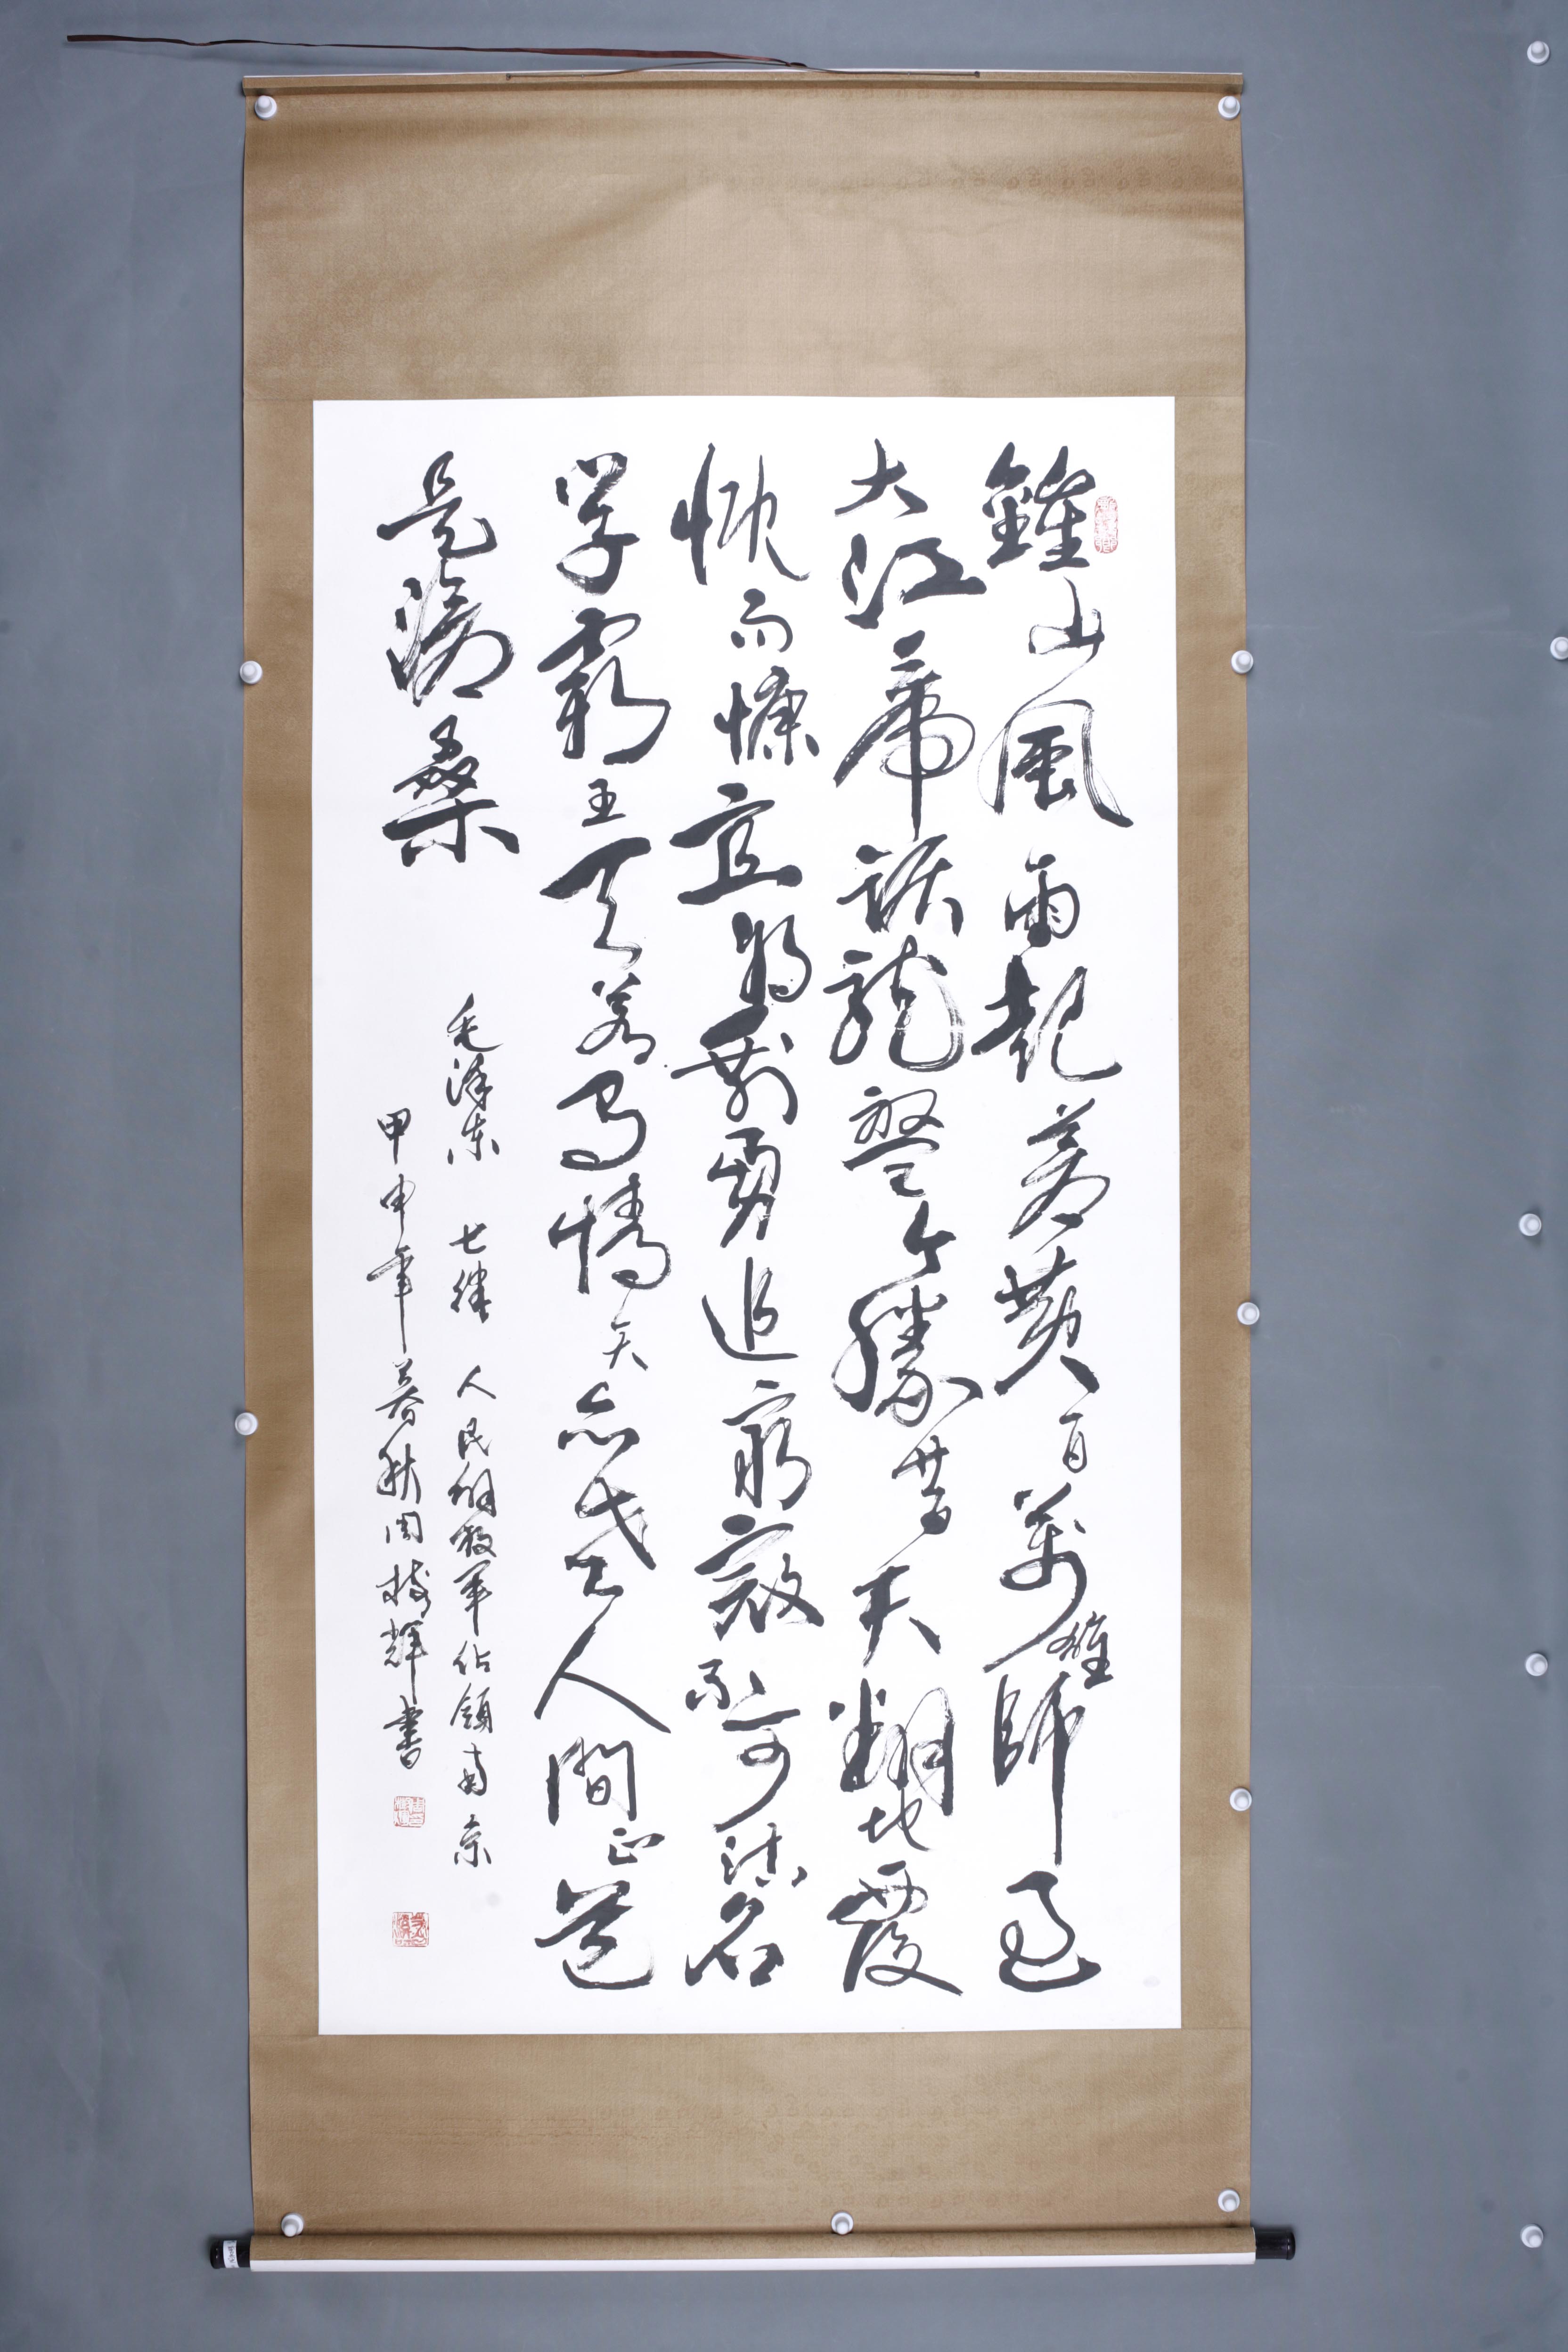 鐘山風雨起蒼黃百萬雄師過
大江虎踞龍盤今勝昔天翻地覆
慨而慷宜將剩勇追窮寇不可沽名
學霸王天若有情天亦老人間正道
是滄桑
毛澤東 七律 人民解放軍佔領南京
甲申年暮秋周輝書